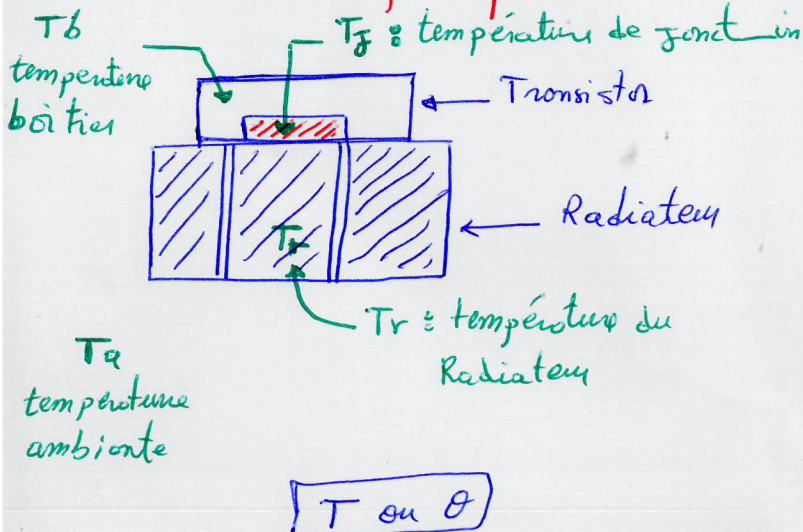 Tb
TJ : température de jonction
température
boîtier
Transistor
Radiateur
Tr
Tr : température du
Radiateur
Ta
température
ambiante
T ou θ